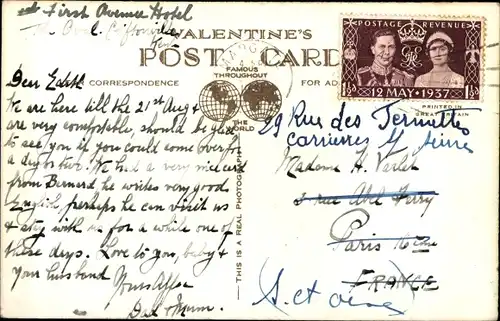 First Avenue Hotel
Oval Cliftonville
Kent
VALENTINE'S
POST CARD
FAMOUS
THROUGHOUT
THE
WORLD
CORRESPONDENCE
FOR AD
POSTAGE REVENUE
12 MAY·1937
1½D
PRINTED IN
GREAT BRITAIN
THIS IS A REAL PHOTOGRAPH
Dear Edith
We are here till the 21st Aug &
are very comfortable, should be glad
to see you if you could come over for
a day or two. We had a very nice card
from Bernard he writes very good
English, perhaps he can visit us
& stay with us for a while one of
these days. Love to you, baby &
your husband
Yours Affec
Dad & Mum
29 Rue des Ternettes
Carrières s/ Seine
Madame H. Varlet
3 rue Abel Ferry
Paris 16 eme
FRANCE
S. et Oise